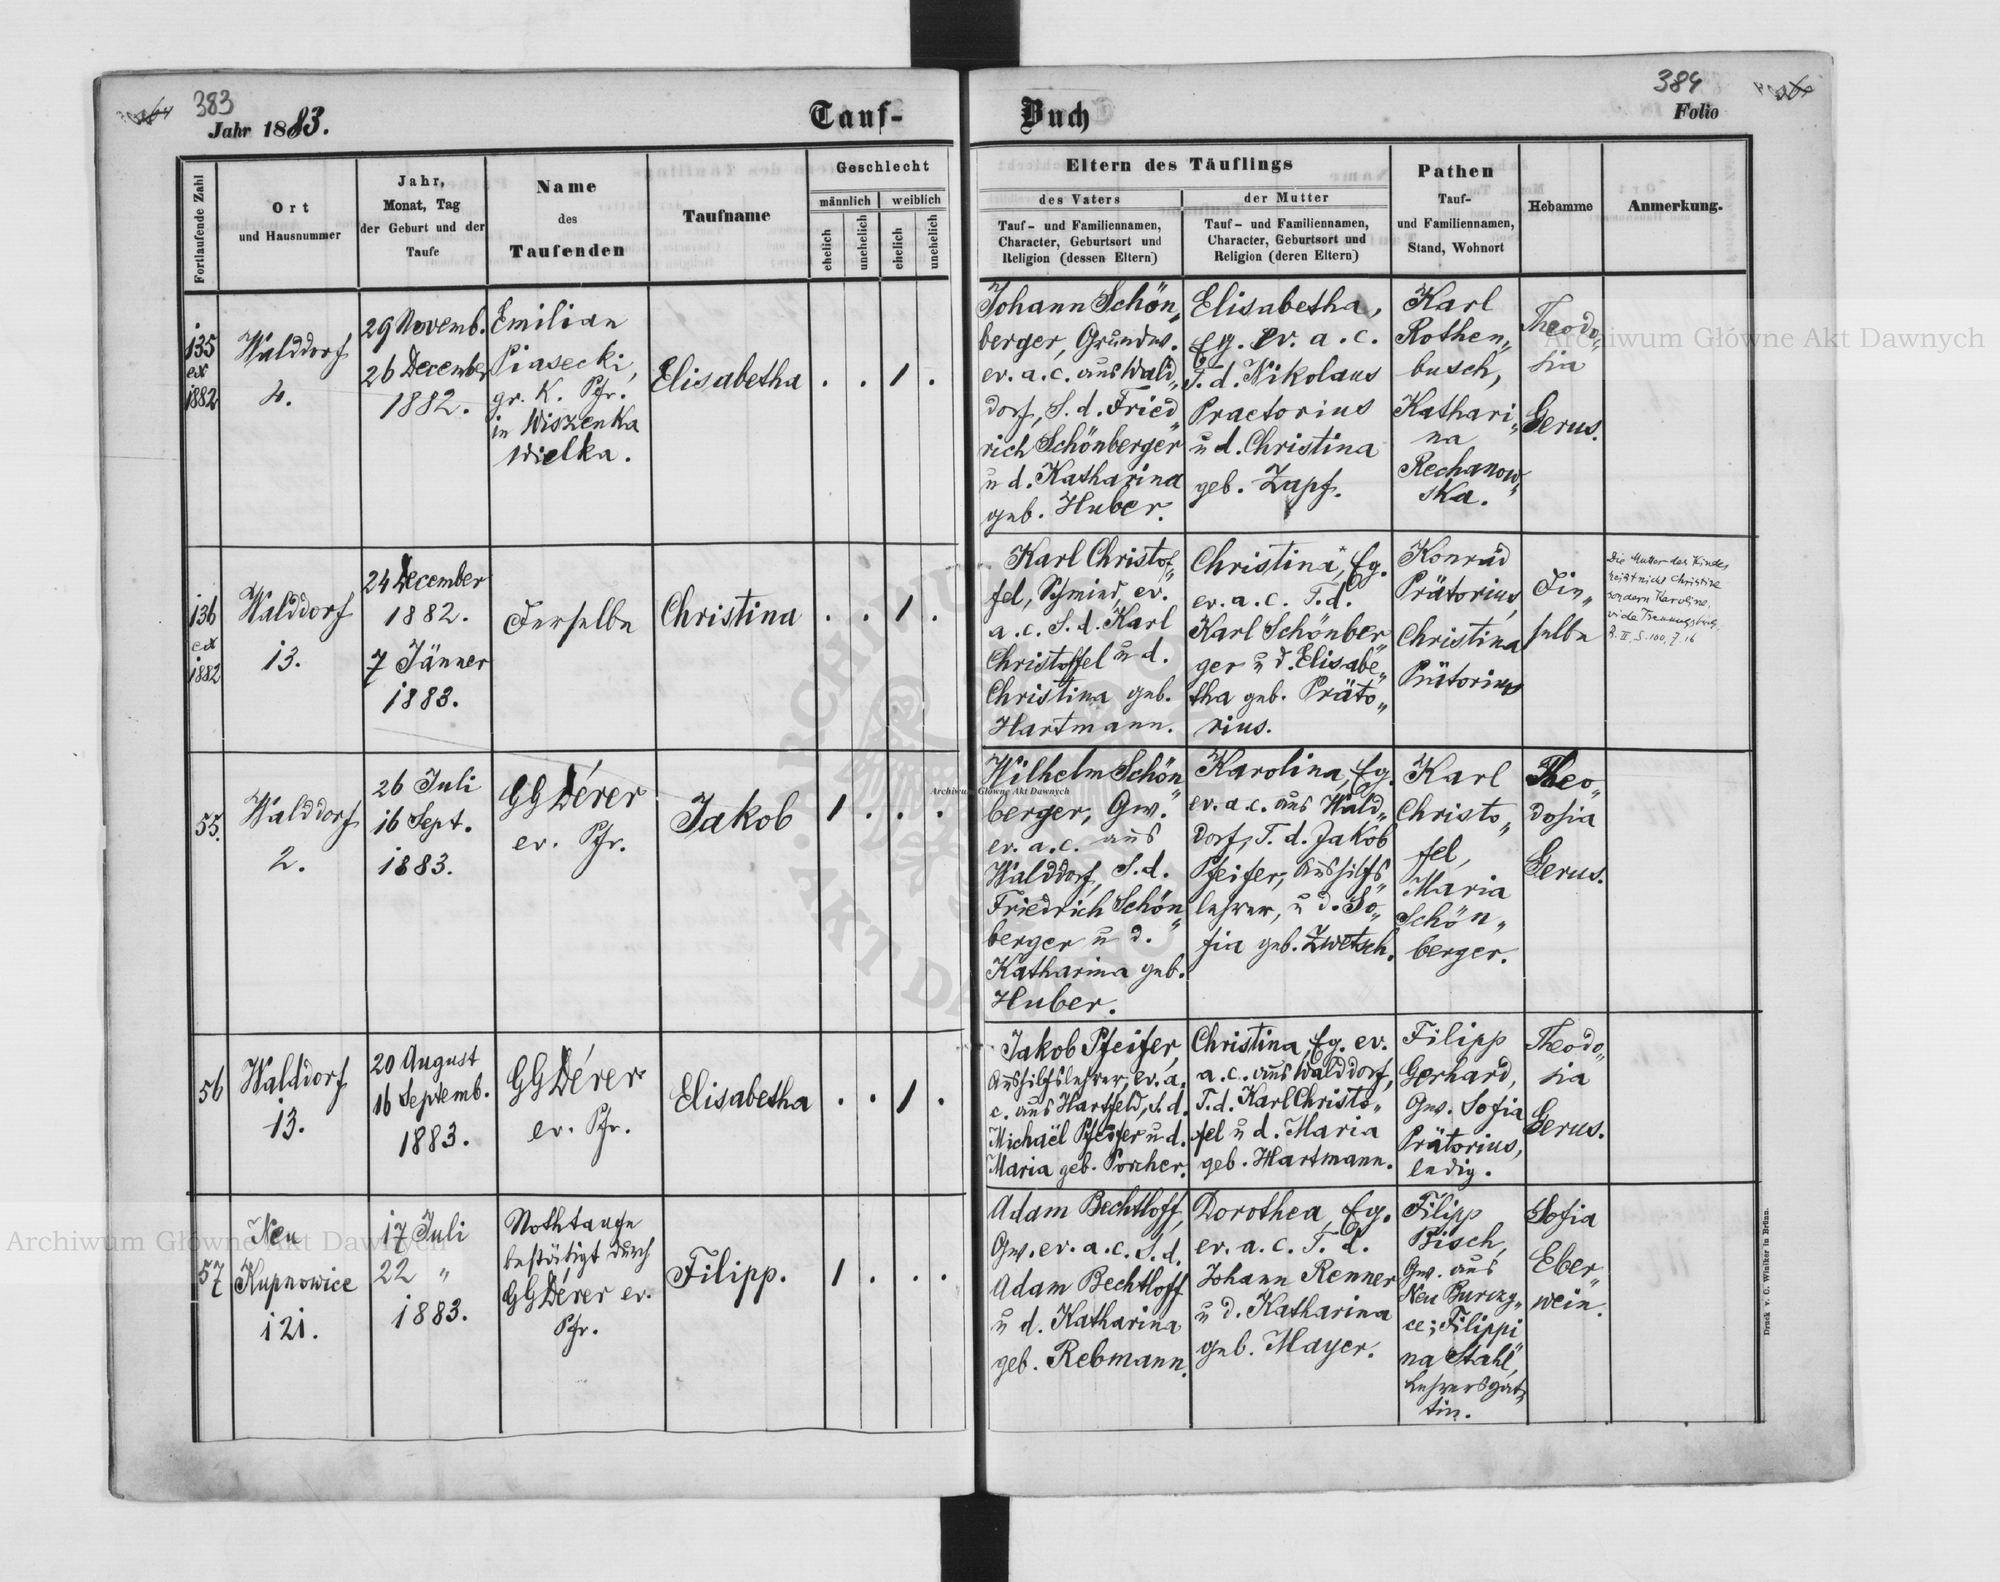 383
Jahr 1883.
Tauf-
Buch
384
Folio
Fortlaufende Zahl
Ort
und Hausnummer
Jahr,
Monat, Tag
der Geburt und der
Taufe
Name
des
Taufenden
Taufname
Geschlecht
männlich
weiblich
ehelich
unehelich
ehelich
unehelich
Eltern des Täuflings
des Vaters
Tauf- und Familiennamen,
Character, Geburtsort und
Religion (dessen Eltern)
der Mutter
Tauf- und Familiennamen,
Character, Geburtsort und
Religion (deren Eltern)
Pathen
Tauf-
und Familiennamen,
Stand, Wohnort
Hebamme
Anmerkung.
135
ex
1882
Walddorf
4.
29 Novemb.
26 December
1882.
Emilian
Piasecki,
gr. K. Pfr.
in Wiszenka
wielka.
Elisabetha
. . 1 .
Johann Schön„
berger, Grundw.
ev. a. c. aus Wald„
dorf, S. d. Fried„
rich Schönberger
u d. Katharina
geb. Huber.
Elisabetha,
Eg. ev. a. c.
T. d. Nikolaus
Praetorius
u d. Christina
geb. Zapf.
Karl
Rothen„
busch,
Kathari„
na
Rechanow„
ska.
Theodo„
sia
Gerus.
136
ex
1882
Walddorf
13.
24 December
1882.
7 Jänner
1883.
Derselbe
Christina
. . 1 .
Karl Christof„
fel, Schmied, ev.
a. c. S. d. Karl
Christoffel u d.
Christina geb.
Hartmann.
Christina*, Eg.
ev. a. c. T. d.
Karl Schönber„
ger u d. Elisabe„
tha geb. Präto„
rius.
Konrad
Prätorius,
Christina
Prätorius
Die„
selbe
Die Mutter des Kindes
heißt nicht Christine
sondern Karoline,
vide Trauungsbuch,
B. II, S. 100, Z. 16
55.
Walddorf
2.
26 Juli
16 Sept.
1883.
GGDérer
ev. Pfr.
Jakob
1 . . .
Wilhelm Schön„
berger, Gw.
ev. a. c. aus
Walddorf, S. d.
Friedrich Schön„
berger u d.
Katharina geb.
Huber.
Karolina, Eg.
ev. a. c. aus Wald„
dorf, T. d. Jakob
Pfeifer, Aushilfs„
lehrer, u d. So„
fia geb. Zwetsch.
Karl
Christo„
fel,
Maria
Schön„
berger.
Theo„
dosia
Gerus.
56
Walddorf
13.
20 August
16 Septemb.
1883.
GGDérer
ev. Pfr.
Elisabetha
. . 1 .
Jakob Pfeifer,
Aushilfslehrer, ev. a.
c. aus Hartfeld, S. d.
Michaël Pfeifer u d.
Maria geb. Porcher.
Christina, Eg. ev.
a. c. aus Walddorf,
T. d. Karl Christo„
fel u d. Maria
geb. Hartmann.
Filipp
Gerhard,
Gw. Sofia
Prätorius,
ledig.
Theodo„
sia
Gerus.
57
Neu
Kupnowice
121.
17 Juli
22 „
1883.
Nothtaufe
bestätigt durch
GGDérer ev.
Pfr.
Filipp.
1 . . .
Adam Bechtloff,
Gw. ev. a. c. S. d.
Adam Bechtloff
u d. Katharina
geb. Rebmann.
Dorothea, Eg.
ev. a. c. T. d.
Johann Renner
u d. Katharina
geb. Mayer.
Filipp
Bisch,
Gw. aus
Neu Burczy„
ce; Filippi„
na Stahl,
Lehrersgat„
tin.
Sofia
Eber„
wein.
Druck v. C. Winiker in Brünn.
Archiwum Główne Akt Dawnych
Archiwum Główne Akt Dawnych
Archiwum Główne Akt Dawnych